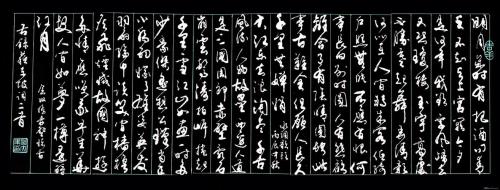 明月幾時有把酒問青
天不知天上宮闕今夕
是何年我欲乘風歸去
又恐瓊樓玉宇高處
不勝寒起舞弄清影
何似在人間轉朱閣低綺
戶照無眠不應有恨何
事長向別時圓人有悲歡
離合月有陰晴圓缺此
事古難全但願人長久
千里共嬋娟
水調歌頭
丙辰中秋
大江東去浪淘盡千古
風流人物故壘西邊人道
是三國周郎赤壁亂石
崩雲驚濤拍岸捲起
千堆雪江山如畫一時多
少豪傑遙想公瑾當年
小喬初嫁了雄姿英發
羽扇綸巾談笑間
灰飛煙滅故國神遊
多情應笑我早生華
髮人間如夢一樽還酹
江月
念奴嬌赤壁懷古
右錄蘇東坡詞二首